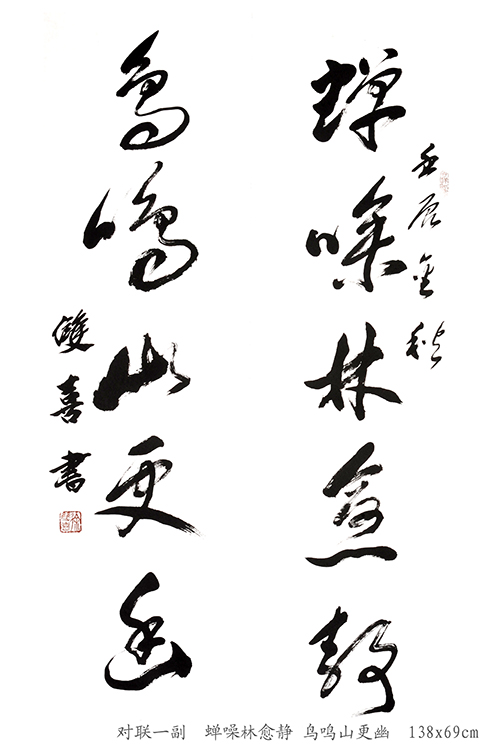 壬辰金秋
蝉噪林愈静
鸟鸣山更幽
雙喜書
对联一副 蝉噪林愈静 鸟鸣山更幽 138x69cm